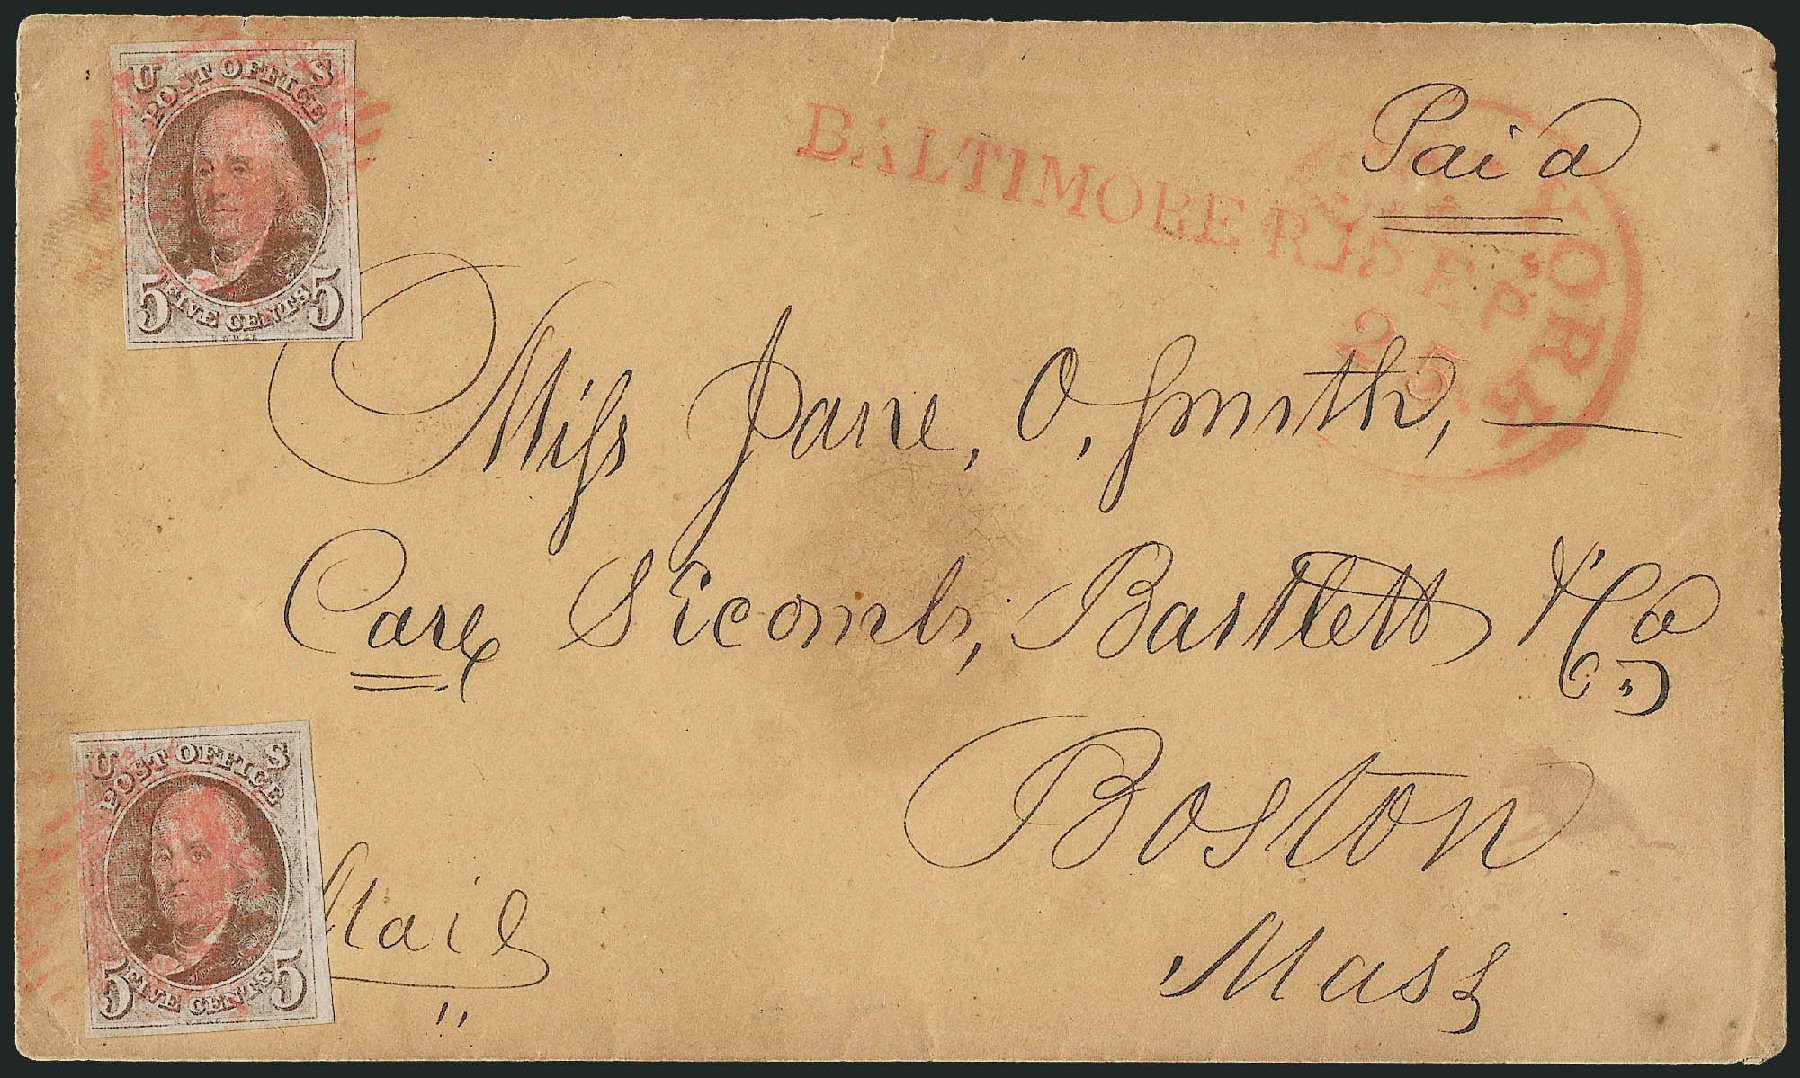 U S
POST OFFICE
5 FIVE CENTS 5
BALTIMORE R.
Paid
YORK
SEP
25
Miss Jane, O, Smith,
Care Sicomb, Bartlett & Co
Boston
Mass
U S
POST OFFICE
5 FIVE CENTS 5
Mail